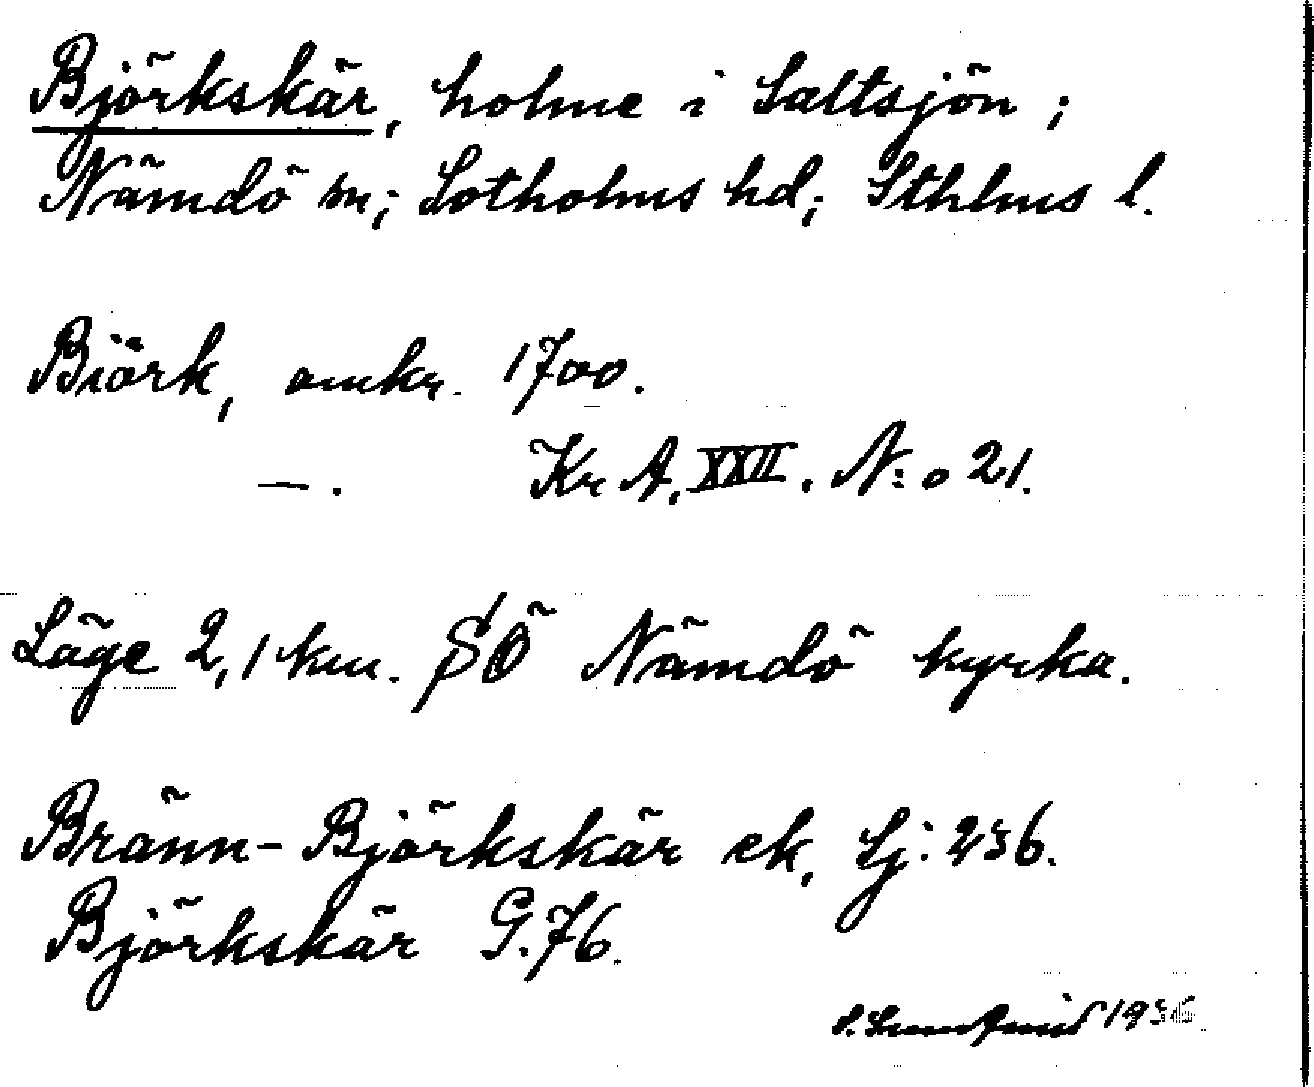 Björkskär, holme i Saltsjön;
Nämdö sn; Sotholms hd; Sthlms l.
Biörk, omkr. 1700.
—. Kr A. XXII. N:o 21.
Läge 2,1 km. SÖ Nämdö kyrka.
Bränn-Björkskär ek, Sj: 236.
Björkskär G. 76.
1936